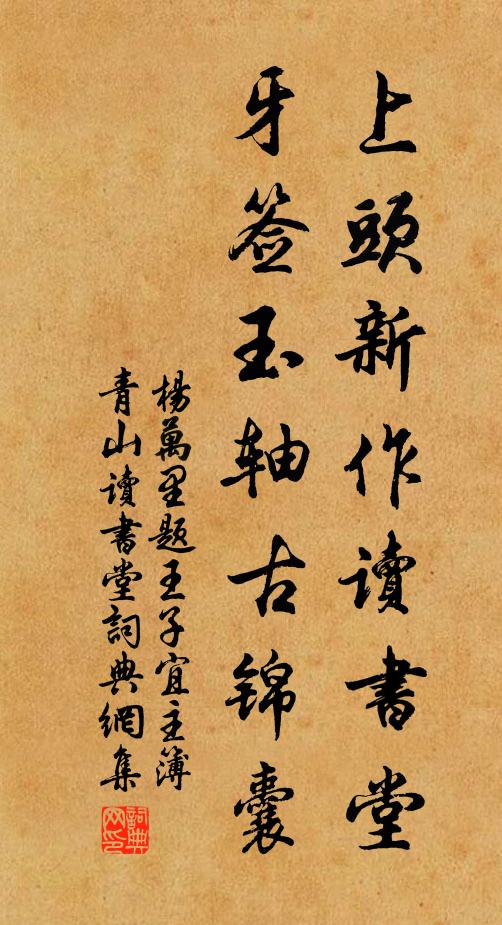 上頭新作讀書堂
牙签玉轴古锦囊
楊萬里题王子宜主簿
青山讀書堂詞典網集
詞典网印